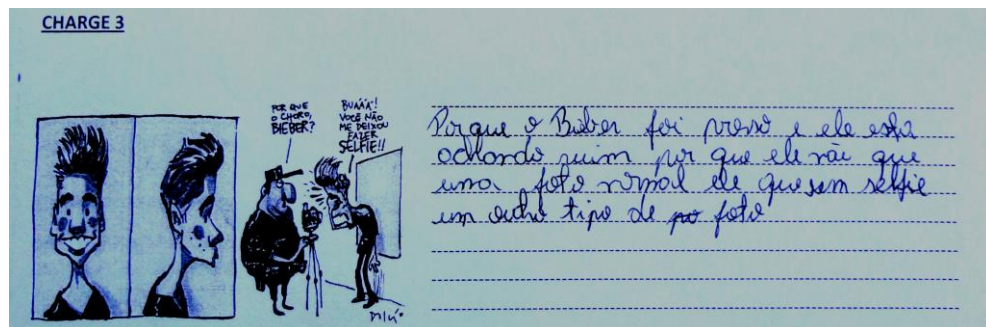 CHARGE 3
POR QUE
O CHORO,
BIEBER?
BUÁÁÁ!
VOCÊ NÃO
ME DEIXOU
FAZER
SELFIE!!
Porque o Biber foi preso e ele esta
achando ruim por que ele não que
uma foto normal ele que sem selfie
um outro tipo de po foto